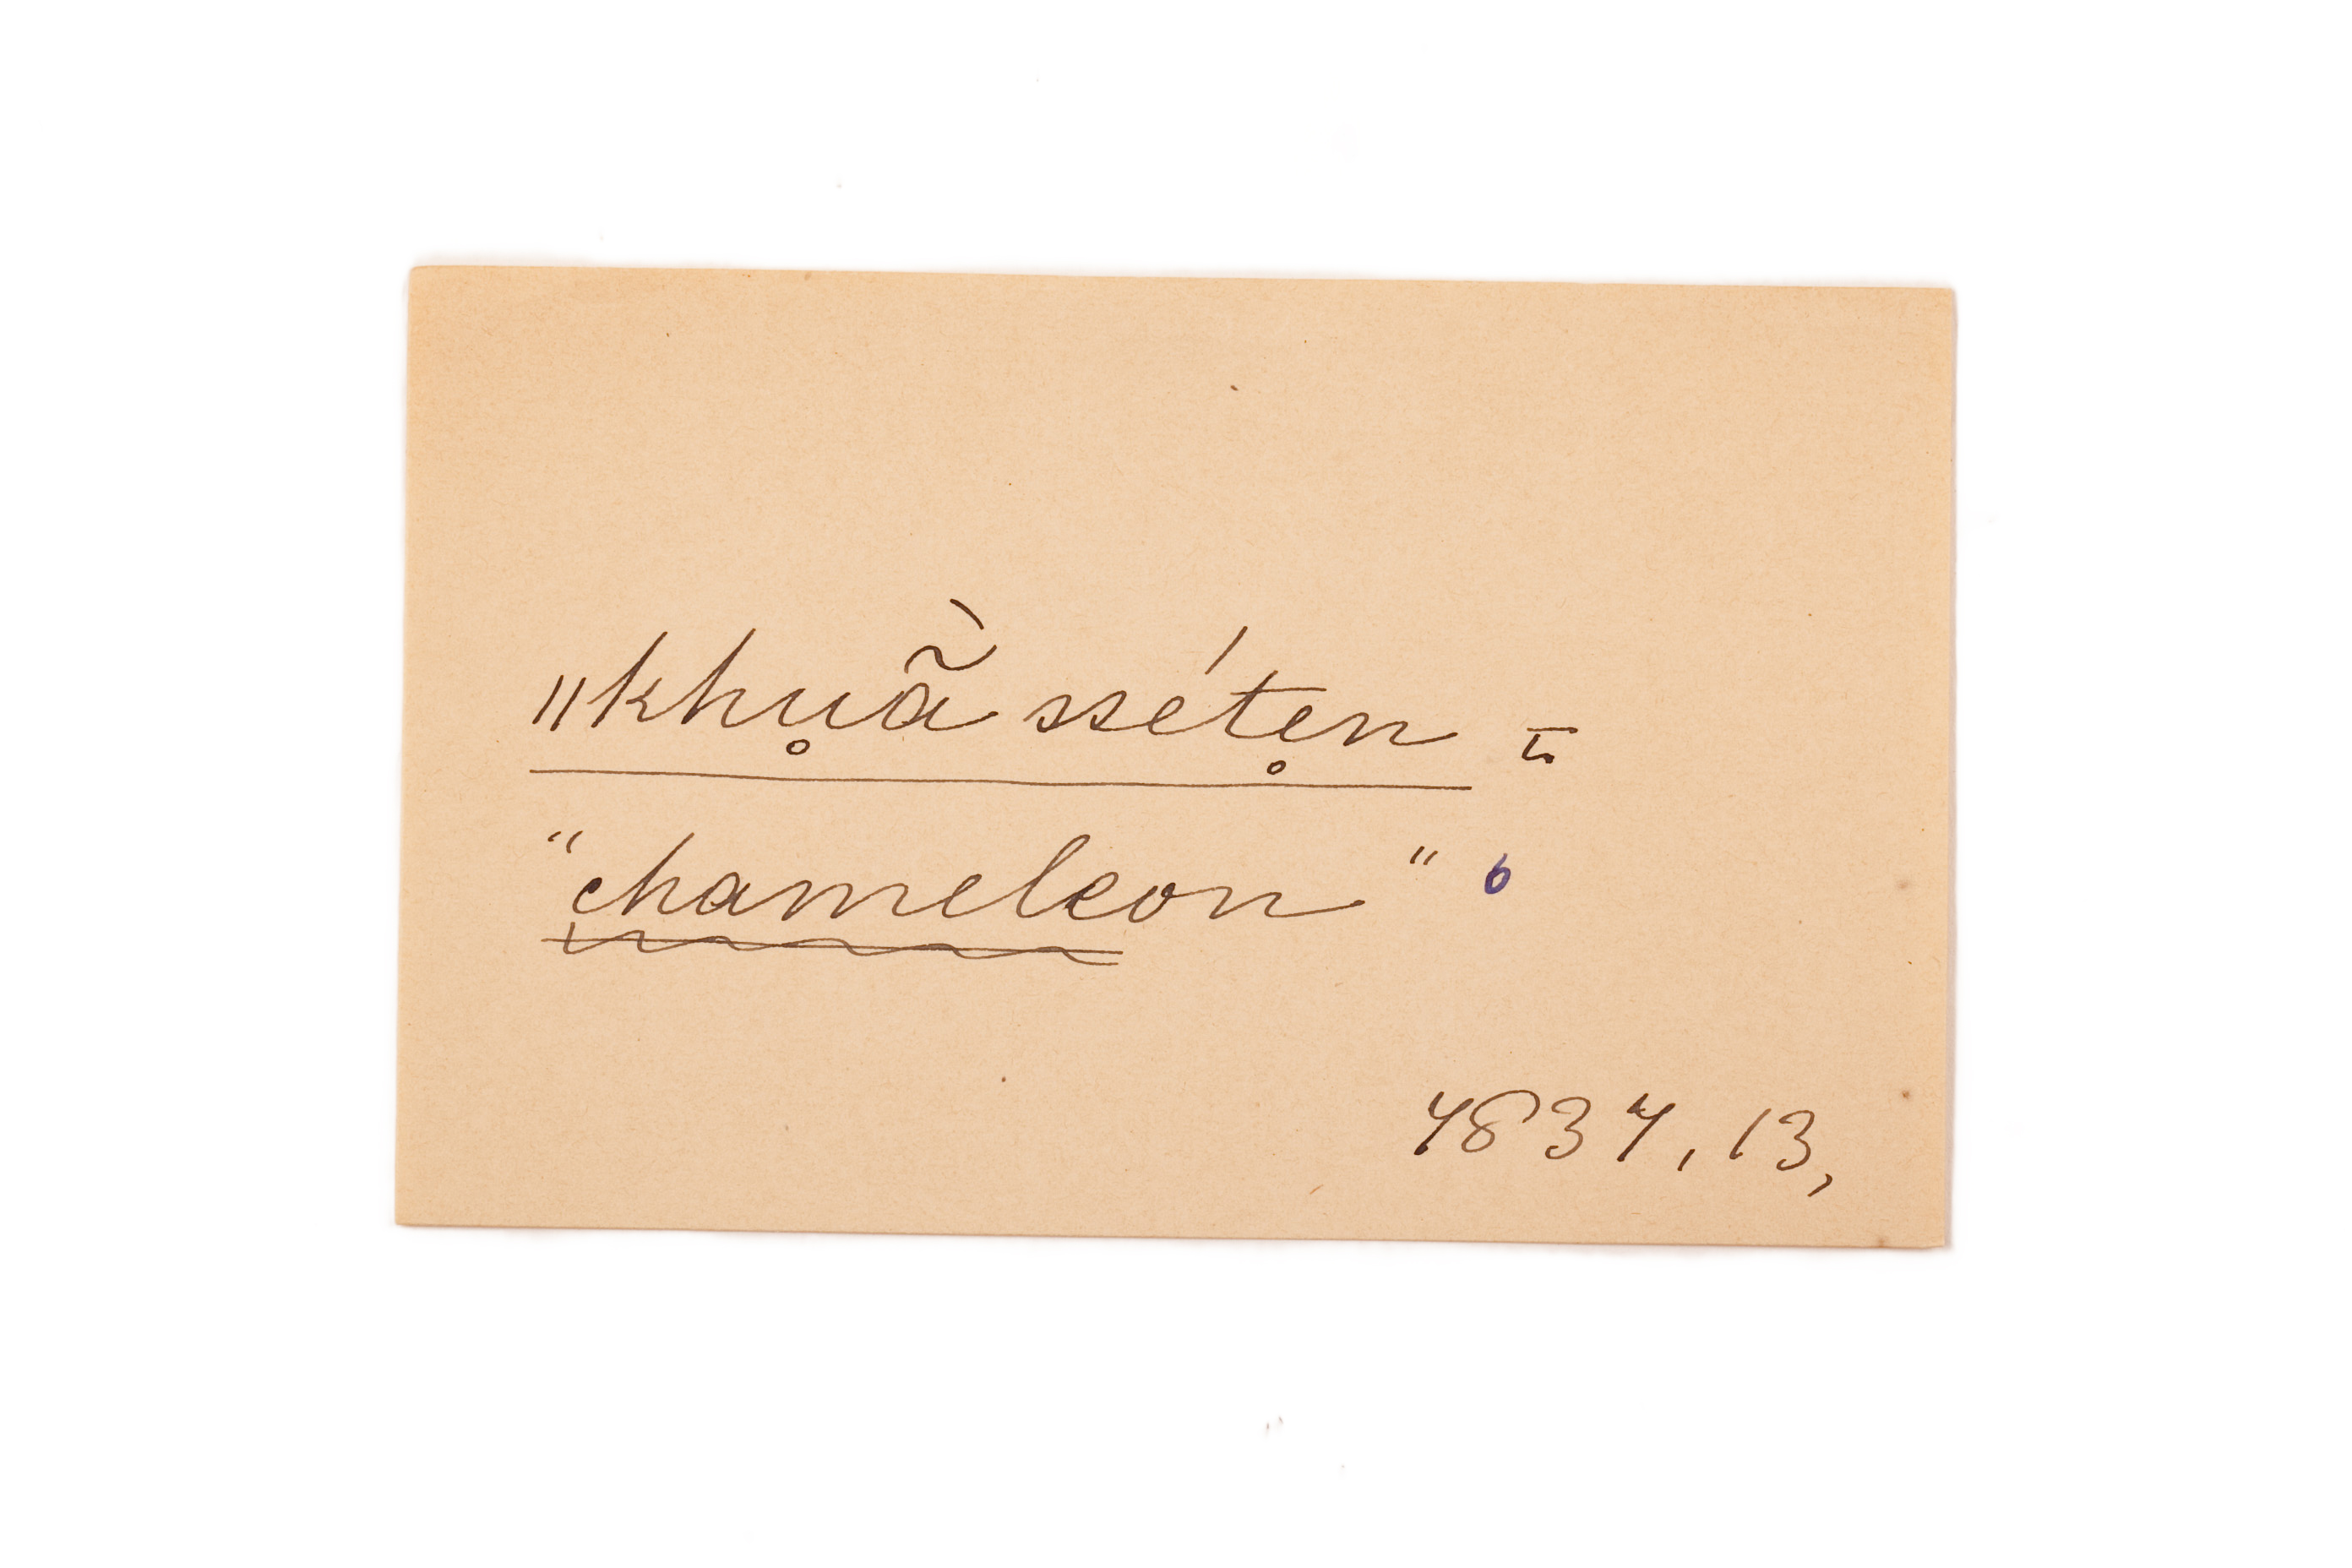 ‖khu̥ã̀ sséte̥n =
"chameleon" 6
4834, 13,